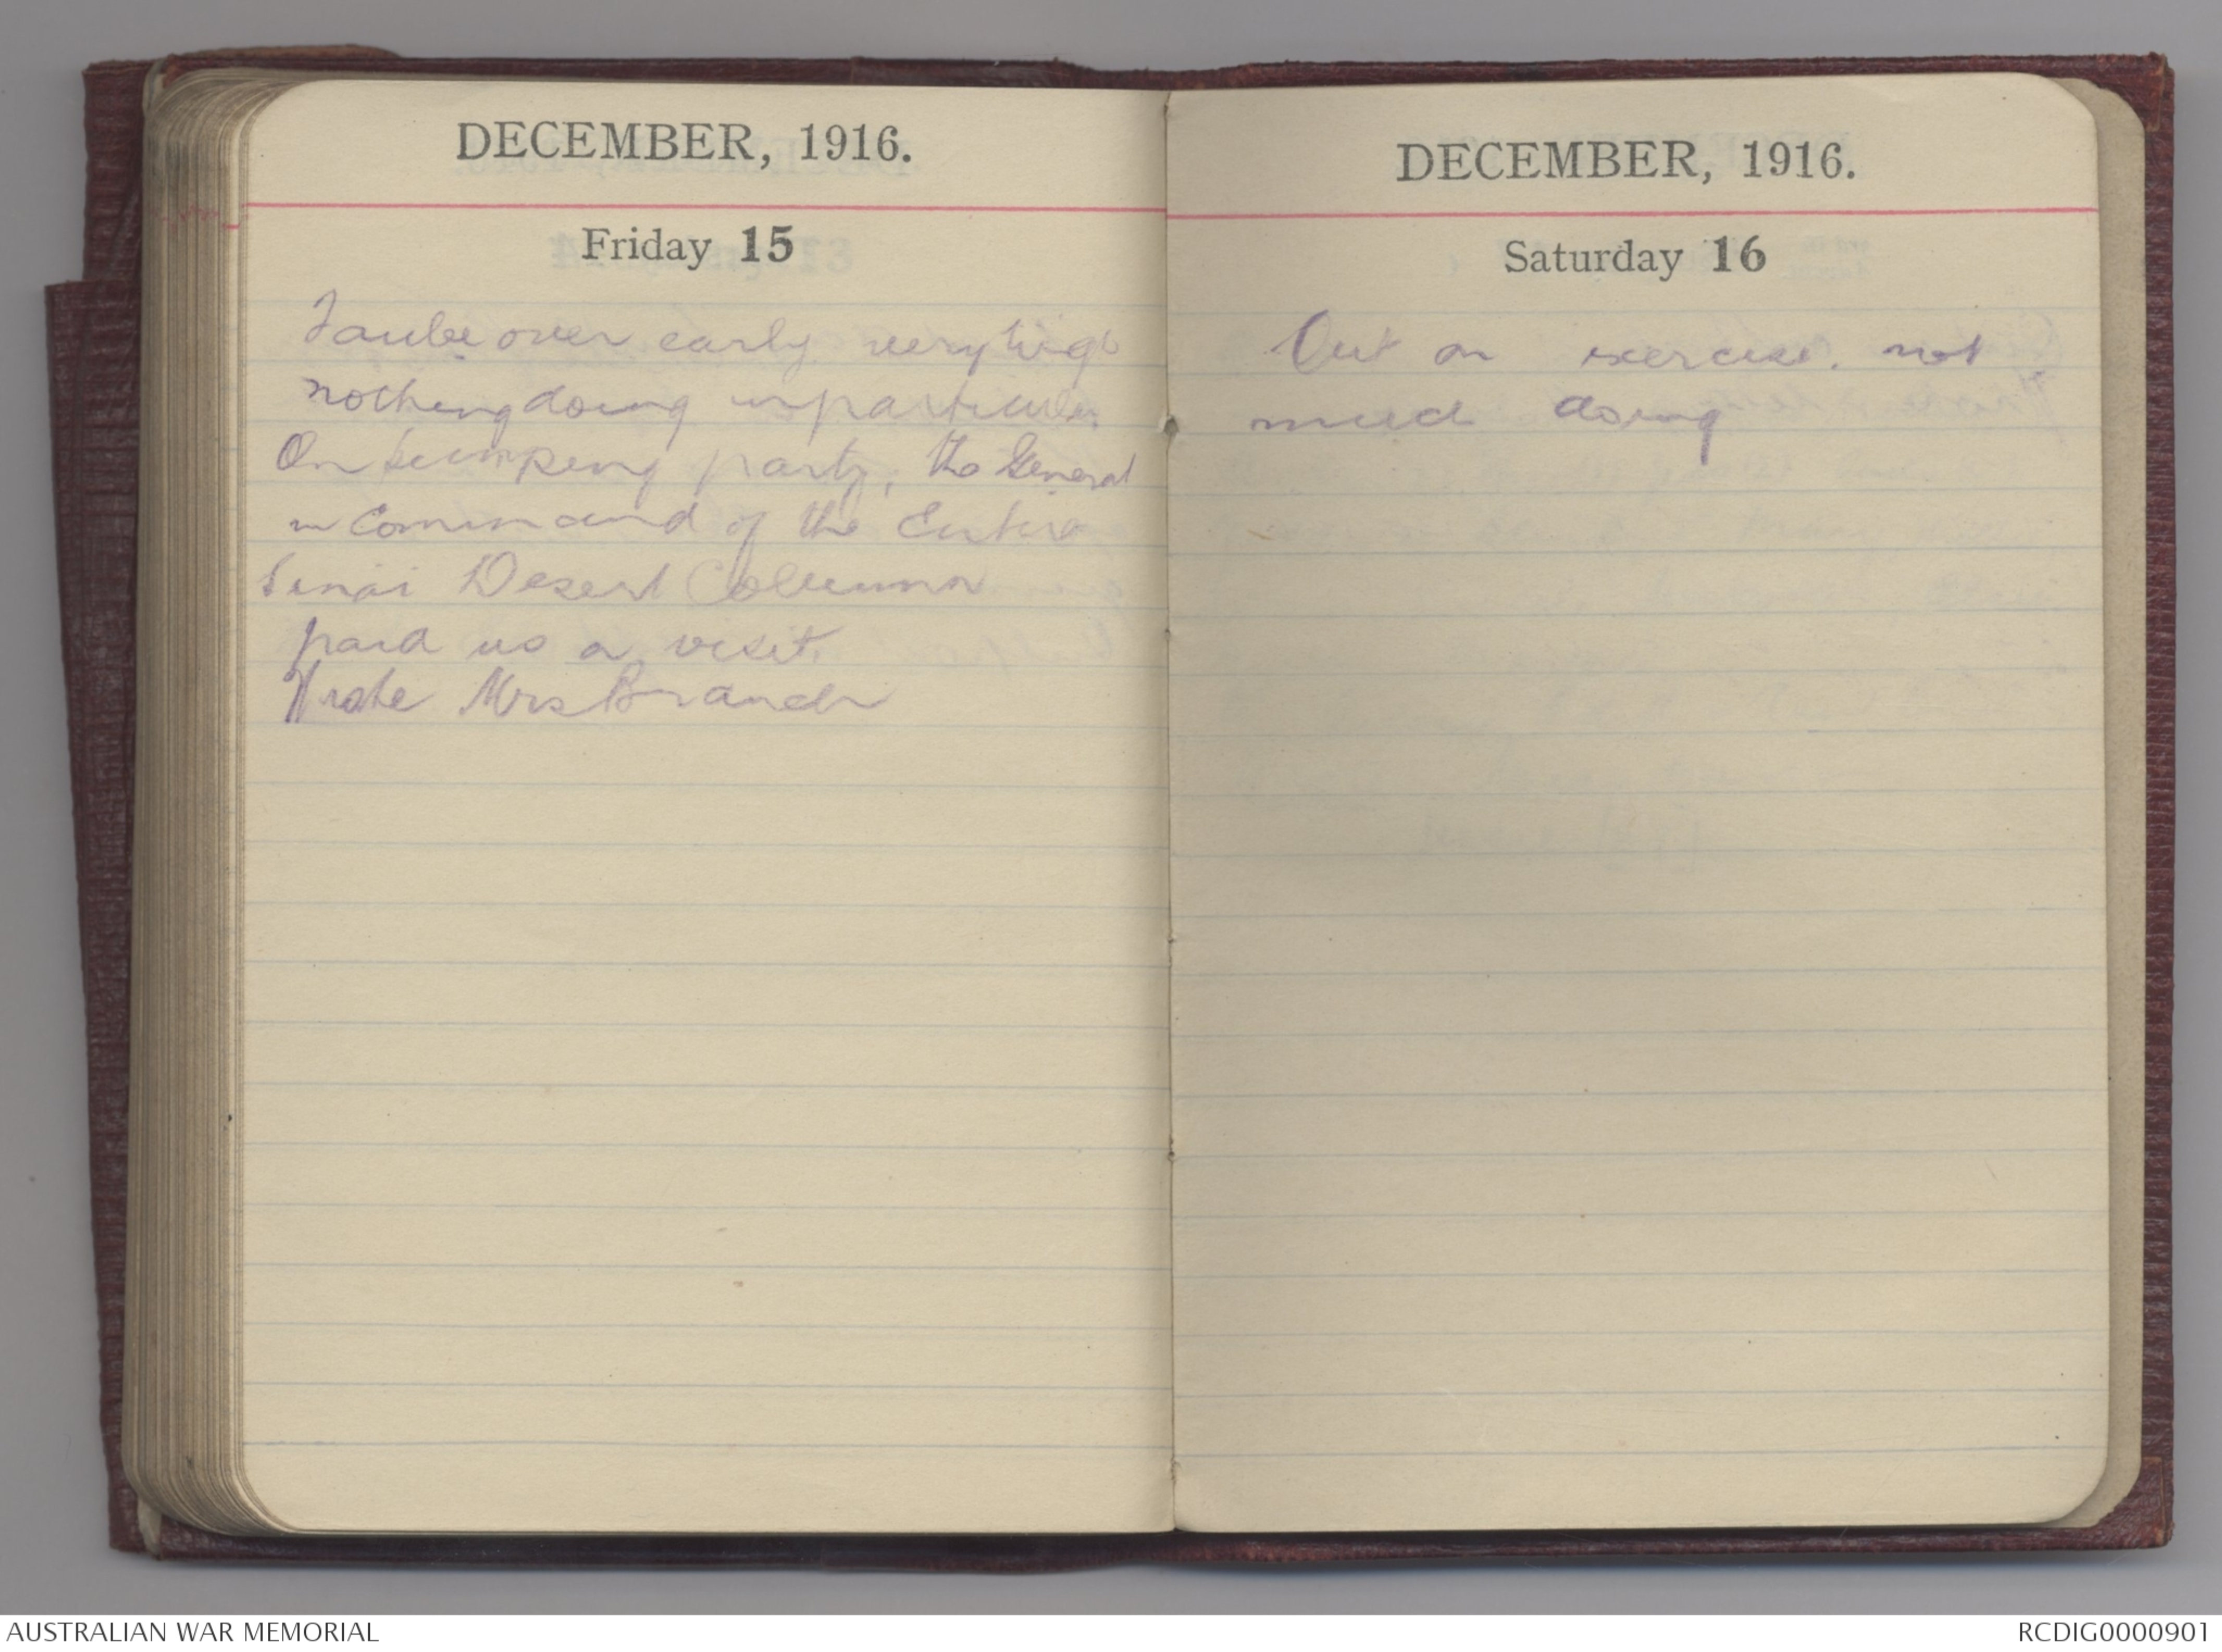 DECEMBER, 1916.
Friday 15
Taube over early very high
nothing doing in particular
On pumping party, the General
in Command of the Entire
Sinai Desert Column
paid us a visit.
Wrote Mrs Branch
DECEMBER, 1916.
Saturday 16
Out on exercise. not
much doing
AUSTRALIAN WAR MEMORIAL
RCDIG0000901